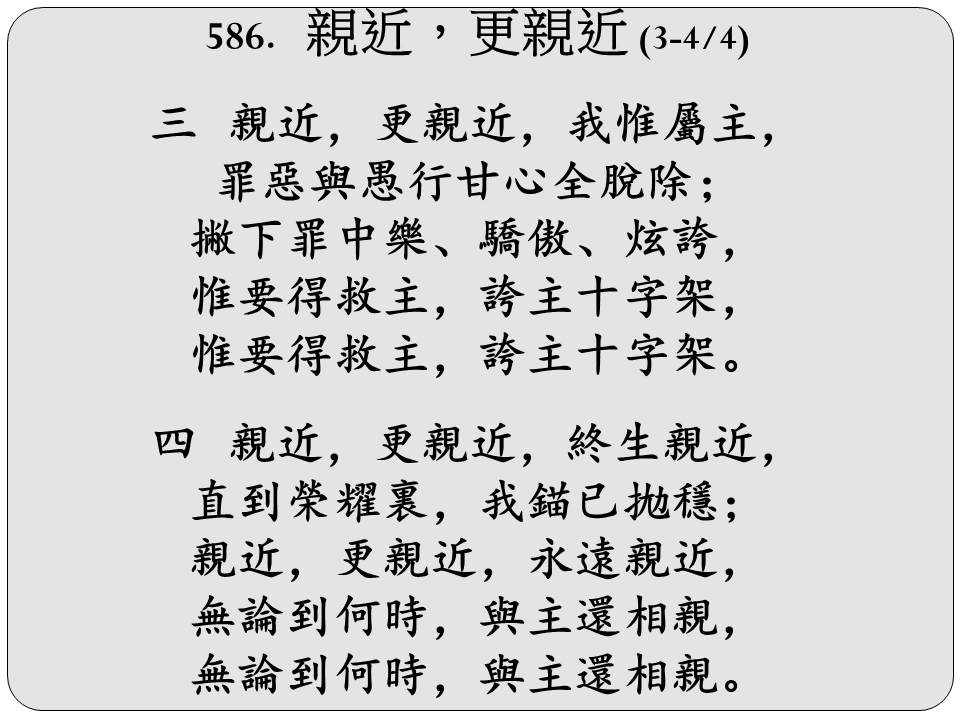 586. 親近，更親近 (3-4/4)
三 親近，更親近，我惟屬主，
罪惡與愚行甘心全脫除；
撇下罪中樂、驕傲、炫誇，
惟要得救主，誇主十字架，
惟要得救主，誇主十字架。
四 親近，更親近，終生親近，
直到榮耀裏，我錨已拋穩；
親近，更親近，永遠親近，
無論到何時，與主還相親，
無論到何時，與主還相親。